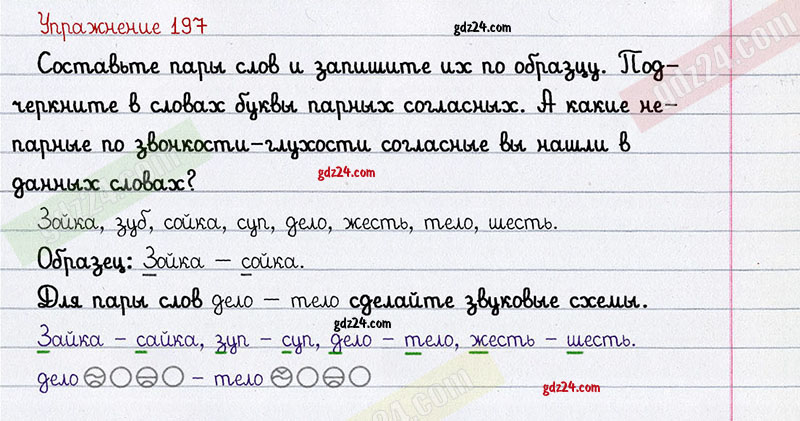 Упражнение 197
gdz24.com
Составьте пары слов и запишите их по образцу. Под-
черкните в словах буквы парных согласных. А какие не-
парные по звонкости-глухости согласные вы нашли в
gdz24.com
данных словах?
Зойка, зуб, сойка, суп, дело, жесть, тело, шесть.
Образец: Зойка – сойка.
Для пары слов дело – тело сделайте звуковые схемы.
gdz24.com
Зайка – сайка, зуп – суп, дело – тело, жесть – шесть.
дело – тело
gdz24.com
gdz24.com
gdz24.com
gdz24.com